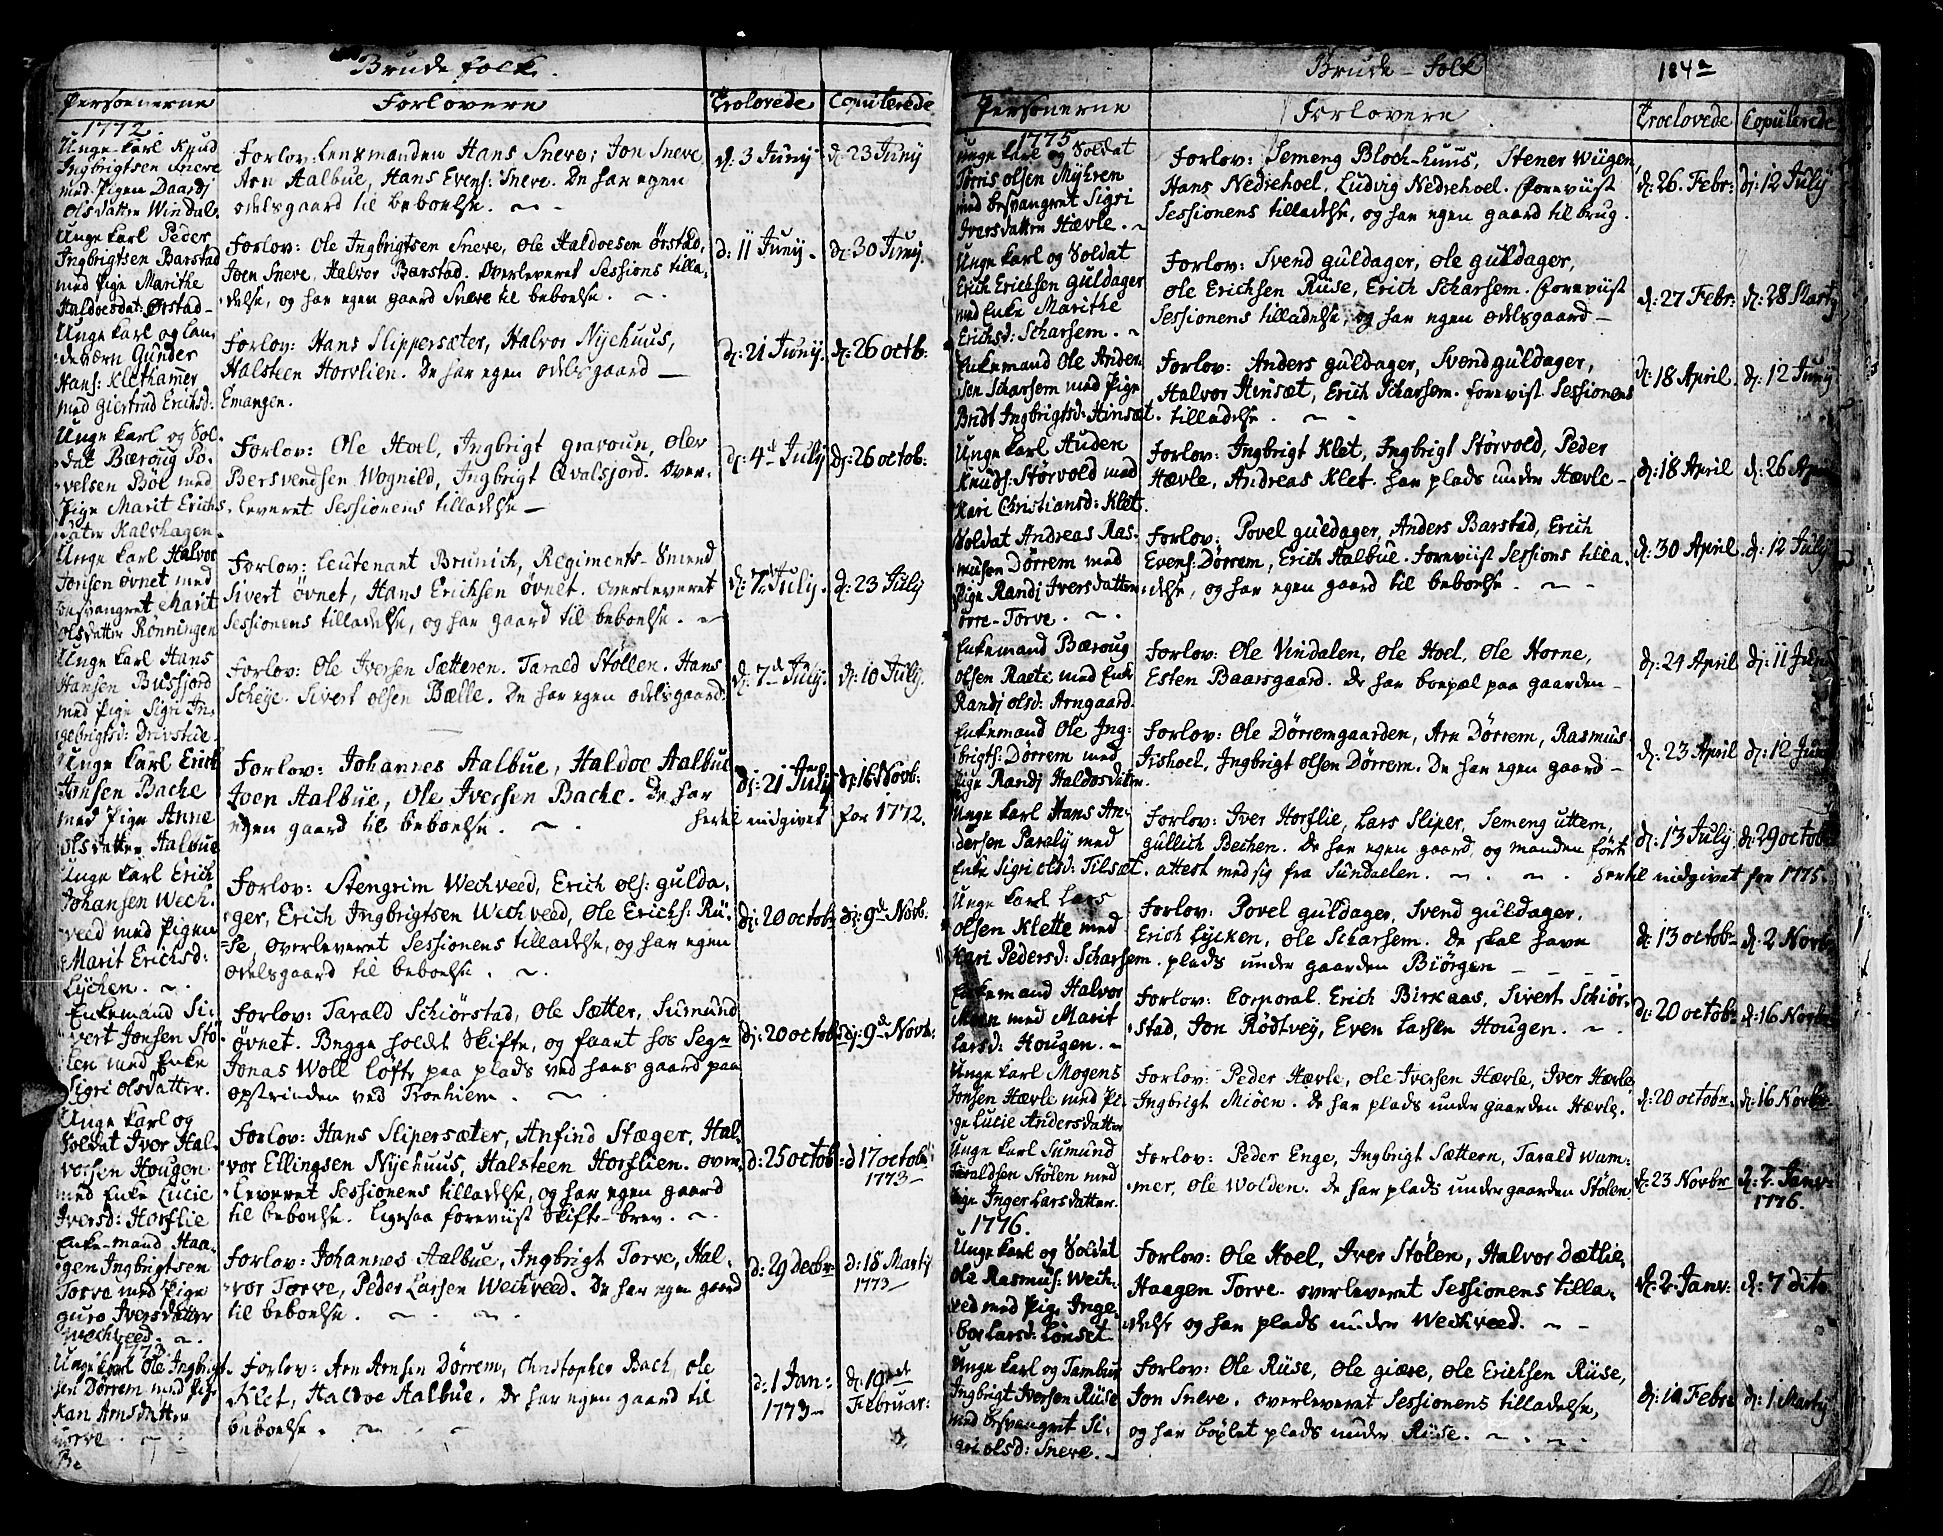 Brude folk.
Personerne
Forlovere
Trolovede
Copulerede
1772.
Unge karl Knud
Ingbrigtsen Sneve
med Pigen Daardj
olsdatter Windals
Forlov: Lensmanden Hans Sneve; Jon Sneve
Arn Aalbue, Hans Evens: Sneve. De har egen
odelsgaard til beboelse.
d: 3 Junÿ
d: 23 Junÿ
Unge karl Peder
Ingbrigtsen Barstad
med Pige Marithe
Haldoesdat: Ørstad
Forlov: Ole Ingbrigtsen Sneve, Ole Haldoesen Ørstad,
Joen Sneve, Halvor Barstad. Overleveret Sessions tilla,
delse, og har egen gaard Sneve til beboelse.
d: 11 Junÿ
d: 30 Junÿ
Unge karl og lan,
deværn Gunder
Hans: Klethamer
med Giertrud Erichsd:
Forlov: Hans Slippersæter, Halvor Nyehuus,
Halsteen Horvlien. De har egen odelsgaard
Emangen.
d: 21 Junÿ
d: 26 octb:
Unge karl og Sol,
dat Bæroug Po,
velsen Boe med
Pige Marit Erichs,
dater Kalvhagen
Forlov: Ole Hoel, Ingbrigt gravoun, Olev
Bersvendsen Wognild, Ingbrigt Qvalsfjord. Over,
leveret Sessionens tilladelse
d: 4d Julÿ
d: 26 octob:
Unge karl Halvor
Jonsen øvnet med
besvangret Marit
olsdatter Rönningen
Forlov: Leutenant Brunich, Regiments-Smend
Sivert øvnet, Hans Erichsen øvnet. overleveret
Sessionens tilladelse, og har gaard til beboelse.
d: 7d Julÿ
d: 23 Julÿ
Unge karl Hans
Hansen Bussjord
med Pige Sigri In,
gebrigtsd: Drivstue
Forlov: Ole Iversen Sætteren. Tarald Stöllen. Hans
Scheje. Sivert olsen Bælle. De har egen odelsgaard
d: 7d Julÿ
d: 10 Julÿ
Unge karl Erich
Jonsen Bache
med Pige Anne
olsdatter Aalbue
Forlov: Johannes Aalbue, Haldoe Aalbue
Iven Aalbue, Ole Iversen Bache. De har
egen gaard til beboelse.
d: 21 Julÿ
d: 16 Novb:
hertil indgivet for 1772.
Unge karl Erich
Johansen Wech,
veed med Pigen
Marit Erichsd:
Lychen.
Forlov: Stengrim Wechveed, Erich ols: gulda,
ger, Erich Ingbrigtsen Wechveed, Ole Erichs: Rü,
se, overleveret Sessionens tilladelse, og har egen
odelsgaard til beboelse.
d: 20 octobr
d: 9d Novb:
Enkemand Si,
vert Jonsen Stö,
len med Enke
Sigri olsdatter.
Forlov: Tarald Schiørstad, Ole Sætter, Sumund
øvnet. Begge holdt Skifte, og faaet hos Segn
Jonas Woll löfte paa plads ved hans gaard paa
opstrinden ved Tronhiem.
d: 20 octob:
d: 9d Novb:
Unge karl og
Soldat Iver Hal,
vorsen Hougen
med Enke Lucie
Iversd: Horflie
Forlov: Hans Slipersæter, Anfind Stæger, Hal,
vor Ellingsen Nyehuus, Halsteen Horflien. over,
leveret Sessionens tilladelse, og har egen gaard
til beboelse. Ligesaa foreviist Skifte-brev.
d: 25 octob:
d 17 octob:
1773
Enke-mand Haa,
gen Ingbrigtsen
Torve med Pige
guro Iversdatter
Wechveed.
Forlov: Johannes Aalbue, Ingbrigt Torve, Hal,
vor Torve, Peder Larsen Wechveed. De har egen gaard
til beboelse.
d: 29 Decbr
d: 18 Martÿ
1773
1773.
Unge karl Ole Ingbrigt,
sen Dörrem med Pige
Kari Arnsdatter
Torve
Forlov: Arn Arnsen Dörrem, Christopher Bach, ole
Klet, Haldoe Aalbue. De har egen gaard til
beboelse.
d: 1 Jan:
1773
d: 19de
Februar:
Be
Brude-folk
184a
Personerne
Forlovere
Troelovede
Copulerede
1775
Unge karl og Soldat
Torris olsen Mÿhren
med besvangret Sigri
Iversdatter Hævle.
Forlov: Semeng Bloch-huus, Stener Wiigen,
Hans Nedrehoel, Ludvig Nedrehoel. foreviist
Sessionens tilladelse, og har egen gaard til brug.
d: 26 Febr:
d: 12 Julÿ
Unge karl og Soldat
Erich Erichsen guldager
med Enke Marithe
Erichsd: Scharsem.
Forlov: Svend guldager, ole guldager,
ole Erichsen Rüse, Erich Scharsem. foreviist
Sessionens tilladelse, og har egen odelsgaard
d: 27 Febr:
d: 28 Martÿ
Enkemand Ole Ander,
sen Scharsem med Pige
Bridt Ingbrigtsd: Hinsæt.
Forlov: Anders guldager, Svend guldager,
Halvor Hinsæt, Erich Scharsem. foreviist Sessionens
tilladelse.
d: 18 April
d: 12 Junÿ
Unge karl Auden
Knuds: Störvold med
Kari Christiansd: Klet
Forlov: Ingbrigt Klet, Ingbrigt Störvold, Peder
Hævle, Andreas Klet. har plads under Hævle
d: 18 April
d: 26 April
Soldat Andreas Ras,
musen Dörrem med
Pige Randj Iversdatter
örre-Torve.
Forlov: Povel guldager, Anders Barstad, Erich
Evens: Dörrem, Erich Aalbue. foreviist Sessions tilla,
delse, og har egen gaard til beboelse.
d: 30 April
d: 12 Julÿ
Enkemand Bæroug
olsen Raete med Enke
Randj olsd: Arngaard.
Forlov: Ole Vindalen, ole Hoel, ole Horne,
Esten Baarsgaard. De har boepæl paa gaarden
d: 24 April
d: 11 Junÿ
Enkemand Ole Ing:
brigts: Dörrem med
Pige Randj Haldosdatter.
Forlov: Ole Dörremgaarden, Arn Dörrem, Rasmus
Fishoel, Ingbrigt olsen Dörrem. De har egen gaard
d: 23 April
d: 12 Junÿ
Unge karl Hans An,
dersen Paralÿ med
Enke Sigri olsd: Tilsæt.
Forlov: Iver Horflie, Lars Sliper, Semeng uttem,
güllich Bechen. De har egen gaard, og manden förte
attest med sig fra Sundaelen.
d: 13 Julÿ
d: 29 octob:
hertil indgivet for 1775.
Unge karl Lars
olsen Klette med
Kari Pedersd: Scharsem.
Forlov: Povel guldager, Svend guldager,
Erich Lycken, ole Scharsem. De skal have
plads under gaarden Biörgen
d: 13 octobr
d: 2 Novbr
Enkemand Halvor
Moen med Marit
Larsd: Hougen.
Forlov: Corporal Erich Birkaas, Sivert Schiør,
stad, Jon Rödtvej, Even Larsen Hougen.
d: 20 octobr
d: 16 Novbr
Unge karl Mogens
Jonsen Hævle med Pi,
ge Lucie Andersdatter
Forlov: Peder Hævle, ole Iversen Hævle, Iver Hævle
Ingbrigt Miöen. De har plads under gaarden Hævle.
d: 20 octobr
d: 16 Novbr
Unge karl Sumund
Taraldsen Stölen med
Pige Inger Larsdatter.
Forlov: Peder Enge, Ingbrigt Sættern, Tarald Wam,
mer, Ole Wolden. De har plads under gaarden Stölen
d: 23 Novbr
d: 2 Janv:
1776.
1776.
Unge karl og Soldat
Ole Rasmus: Wech,
ved med Pige Inge
bor Larsd: Lönset
Forlov: Ole Hoel, Iver Stölen, Halvor Dætlie,
Haagen Torve. overleveret Sessionens tilla,
delse og har plads under Weckveed.
d: 2 Janv:
d: 7 dito
Unge karl og Tambur
Ingbrigt Iversen Rüse
med besvangret Si,
gri olsd: Sneve.
Forlov: Ole Rüse, ole giæse, ole Erichsen Rüse,
Jon Sneve. overleveret Sessionens tilladelse,
og har böxlet plads under Rüse.
d: 10 Febr
d: 1 Martÿ